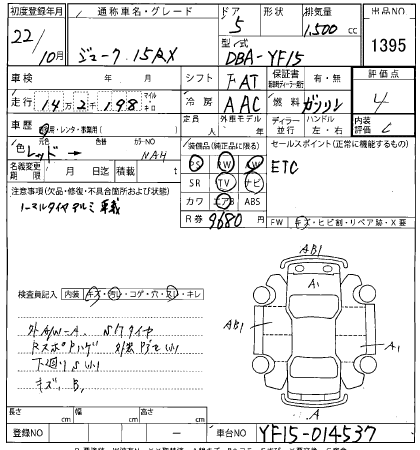 初度登録年月 通称車名・グレード ドア 形状 排気量 出品NO
22/10月 ジューク 15RX 5 1,500 cc 1395
型式 DBA-YF15
車検 年 月 シフト F・AT 保証書 有・無 評価点
走行 14万2千198 マイル キロ 冷房 AAC 燃料 ガソリン 4
車歴 自家用・レンタ・事業用( ) 定員 人 外車モデル ディーラー 並行 ハンドル 左・右 内装評価 C
色 元色 レッド→ 色替 カラーNO NAH 装備品(純正品に限る) セールスポイント(正常に機能するもの)
PS PW AW ETC
名義変更期限 月 日迄 積載 t SR TV ナビ
注意事項(欠品・修復・不具合箇所および状態) カワ エアB ABS
ノーマルタイヤアルミ車載 R券 9680円 FW キズ・ヒビ割・リペア跡・X要
AB1
A1
検査員記入 内装 キズ・汚い・コゲ・穴・スレ・キレ
外AW-A、S17タイヤ AB1 A1
下廻りS小
キズ、B,
A
長さ cm 幅 cm 高さ cm
登録NO ー 車台NO YF15-014537